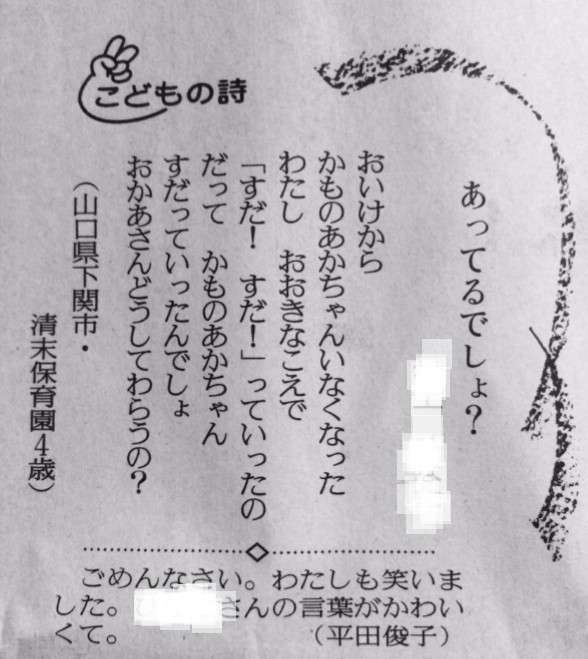 こどもの詩
あってるでしょ？
おいけから
かものあかちゃんいなくなった
わたし　おおきなこえで
「すだ！　すだ！」っていったの
だって　かものあかちゃん
すだっていったんでしょ
おかあさんどうしてわらうの？
（山口県下関市・
清末保育園4歳）
ごめんなさい。わたしも笑いま
した。さんの言葉がかわい
くて。（平田俊子）